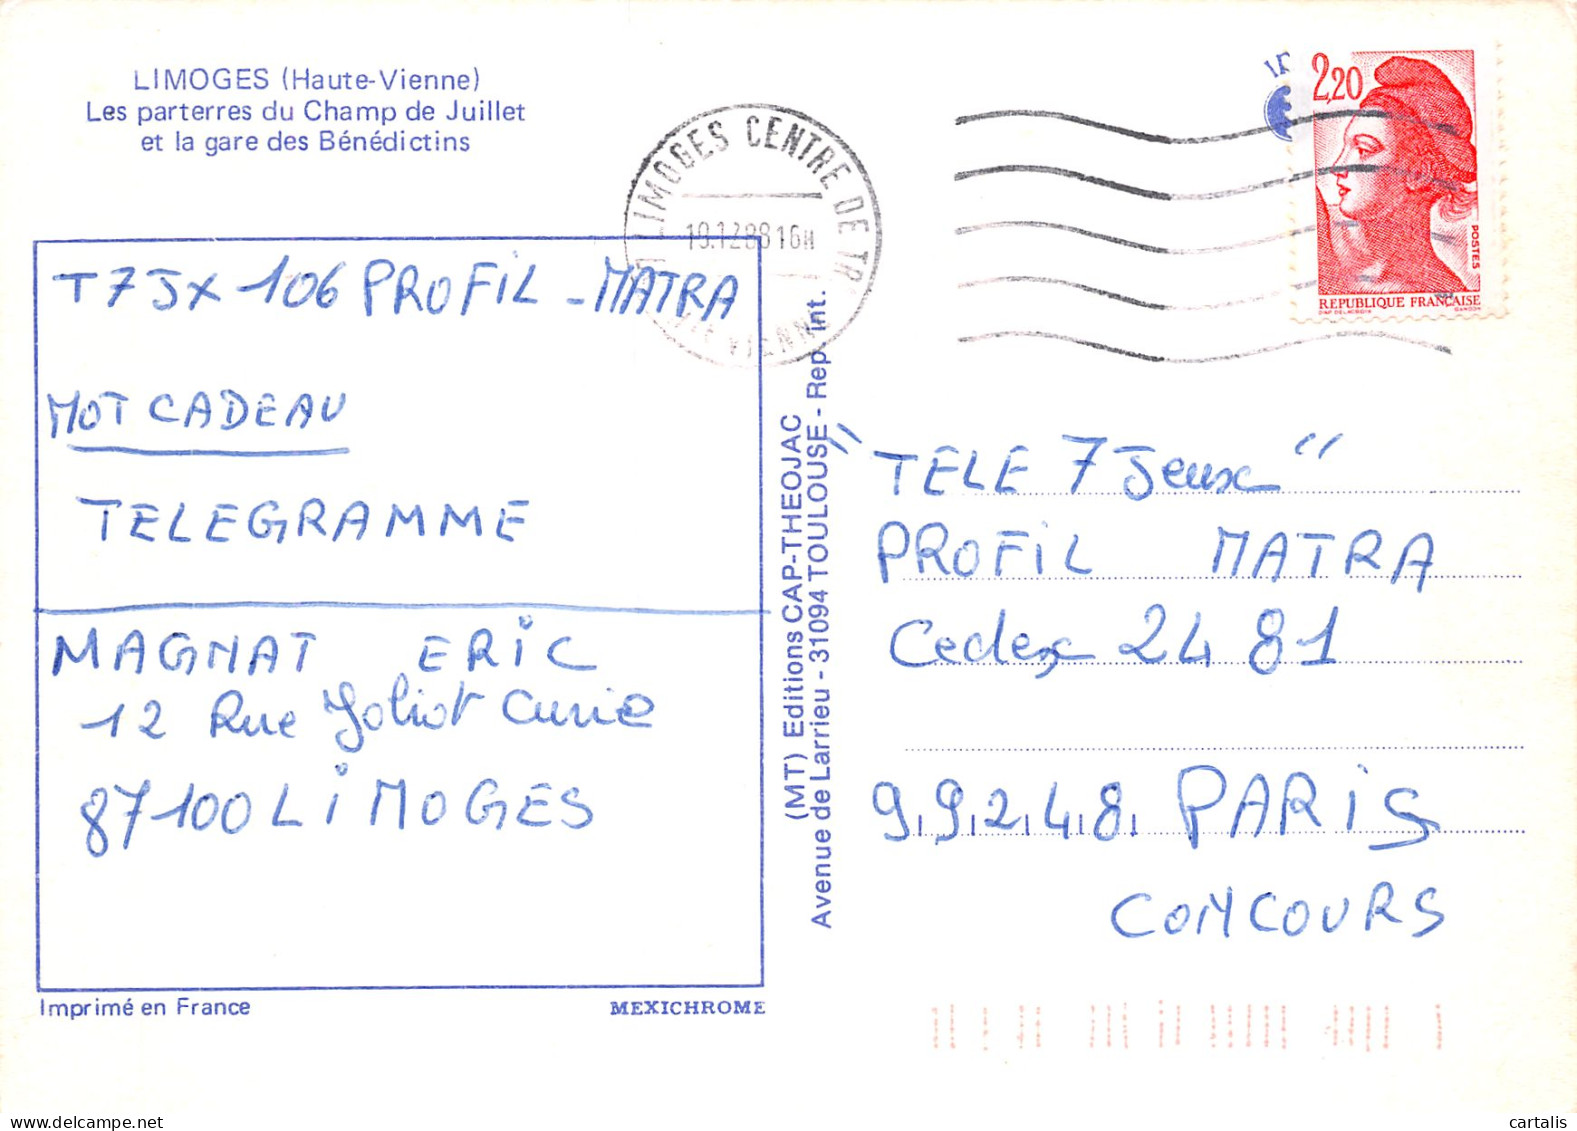 LIMOGES (Haute-Vienne)
Les parterres du Champ de Juillet
et la gare des Bénédictins
LIMOGES CENTRE DE TR
VIENNE
2,20
POSTES
REPUBLIQUE FRANÇAISE
T7JX 106 PROFIL - MATRA
MOT CADEAU
TELEGRAMME
MAGNAT ERIC
12 Rue Joliot Curie
87100 LIMOGES
Imprimé en France
MEXICHROME
(MT) Editions CAP-THEOJAC
Avenue de Larrieu - 31094 TOULOUSE - Rep. int.
"TELE 7 Jeux"
PROFIL MATRA
Cedex 2481
99248 PARIS
CONCOURS
cartalis